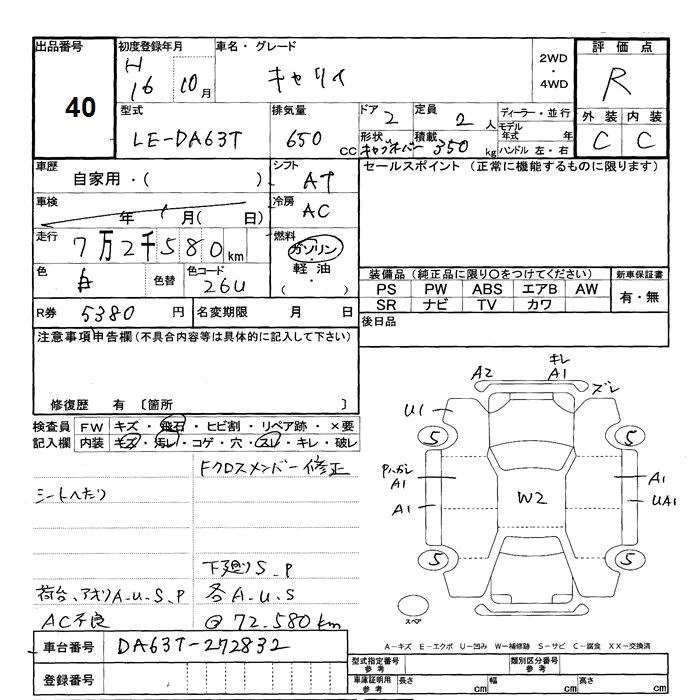 出品番号 初度登録年月 車名・グレード 2WD ・ 4WD 評価点
40 H 16 10月 キャリイ R
型式 排気量 ドア 定員 ディーラー・並行 外装 内装
LE-DA63T 650 CC 2 2人 モデル年式 年 C C
形状 積載 ハンドル 左・右
キャブオーバー 350 kg
車歴 シフト セールスポイント (正常に機能するものに限ります)
自家用・( ) AT
車検 年 月( 日) 冷房
AC
走行 7万2千580km 燃料
ガソリン・軽油・( )
色 色替 色コード
白 26U
装備品 (純正品に限り○をつけてください) 新車保証書
PS PW ABS エアB AW 有・無
SR ナビ TV カワ
R券 5380円 名変期限 月 日 後日品
注意事項申告欄(不具合内容等は具体的に記入して下さい)
修復歴 有 〔箇所 〕
検査員 FW キズ・飛石・ヒビ割・リペア跡・×要
記入欄 内装 キズ・汚レ・コゲ・穴・スレ・キレ・破レ
Fクロスメンバー修正
シートヘたり
下廻りS.P
荷台、アオリA.U.S.P 各A.U.S
AC不良 @72.580km
A2 キレ A1 ズレ
U1
5 5
PハガレA1 A1
W2
A1 UA1
5 5
スペア
A－キズ E－エクボ U－凹み W－補修跡 S－サビ C－腐食 XX－交換済
車台番号 DA63T-272832
登録番号
型式指定番号 参考 類別区分番号 参考
車庫証明用 参考 長さ cm 幅 cm 高さ cm